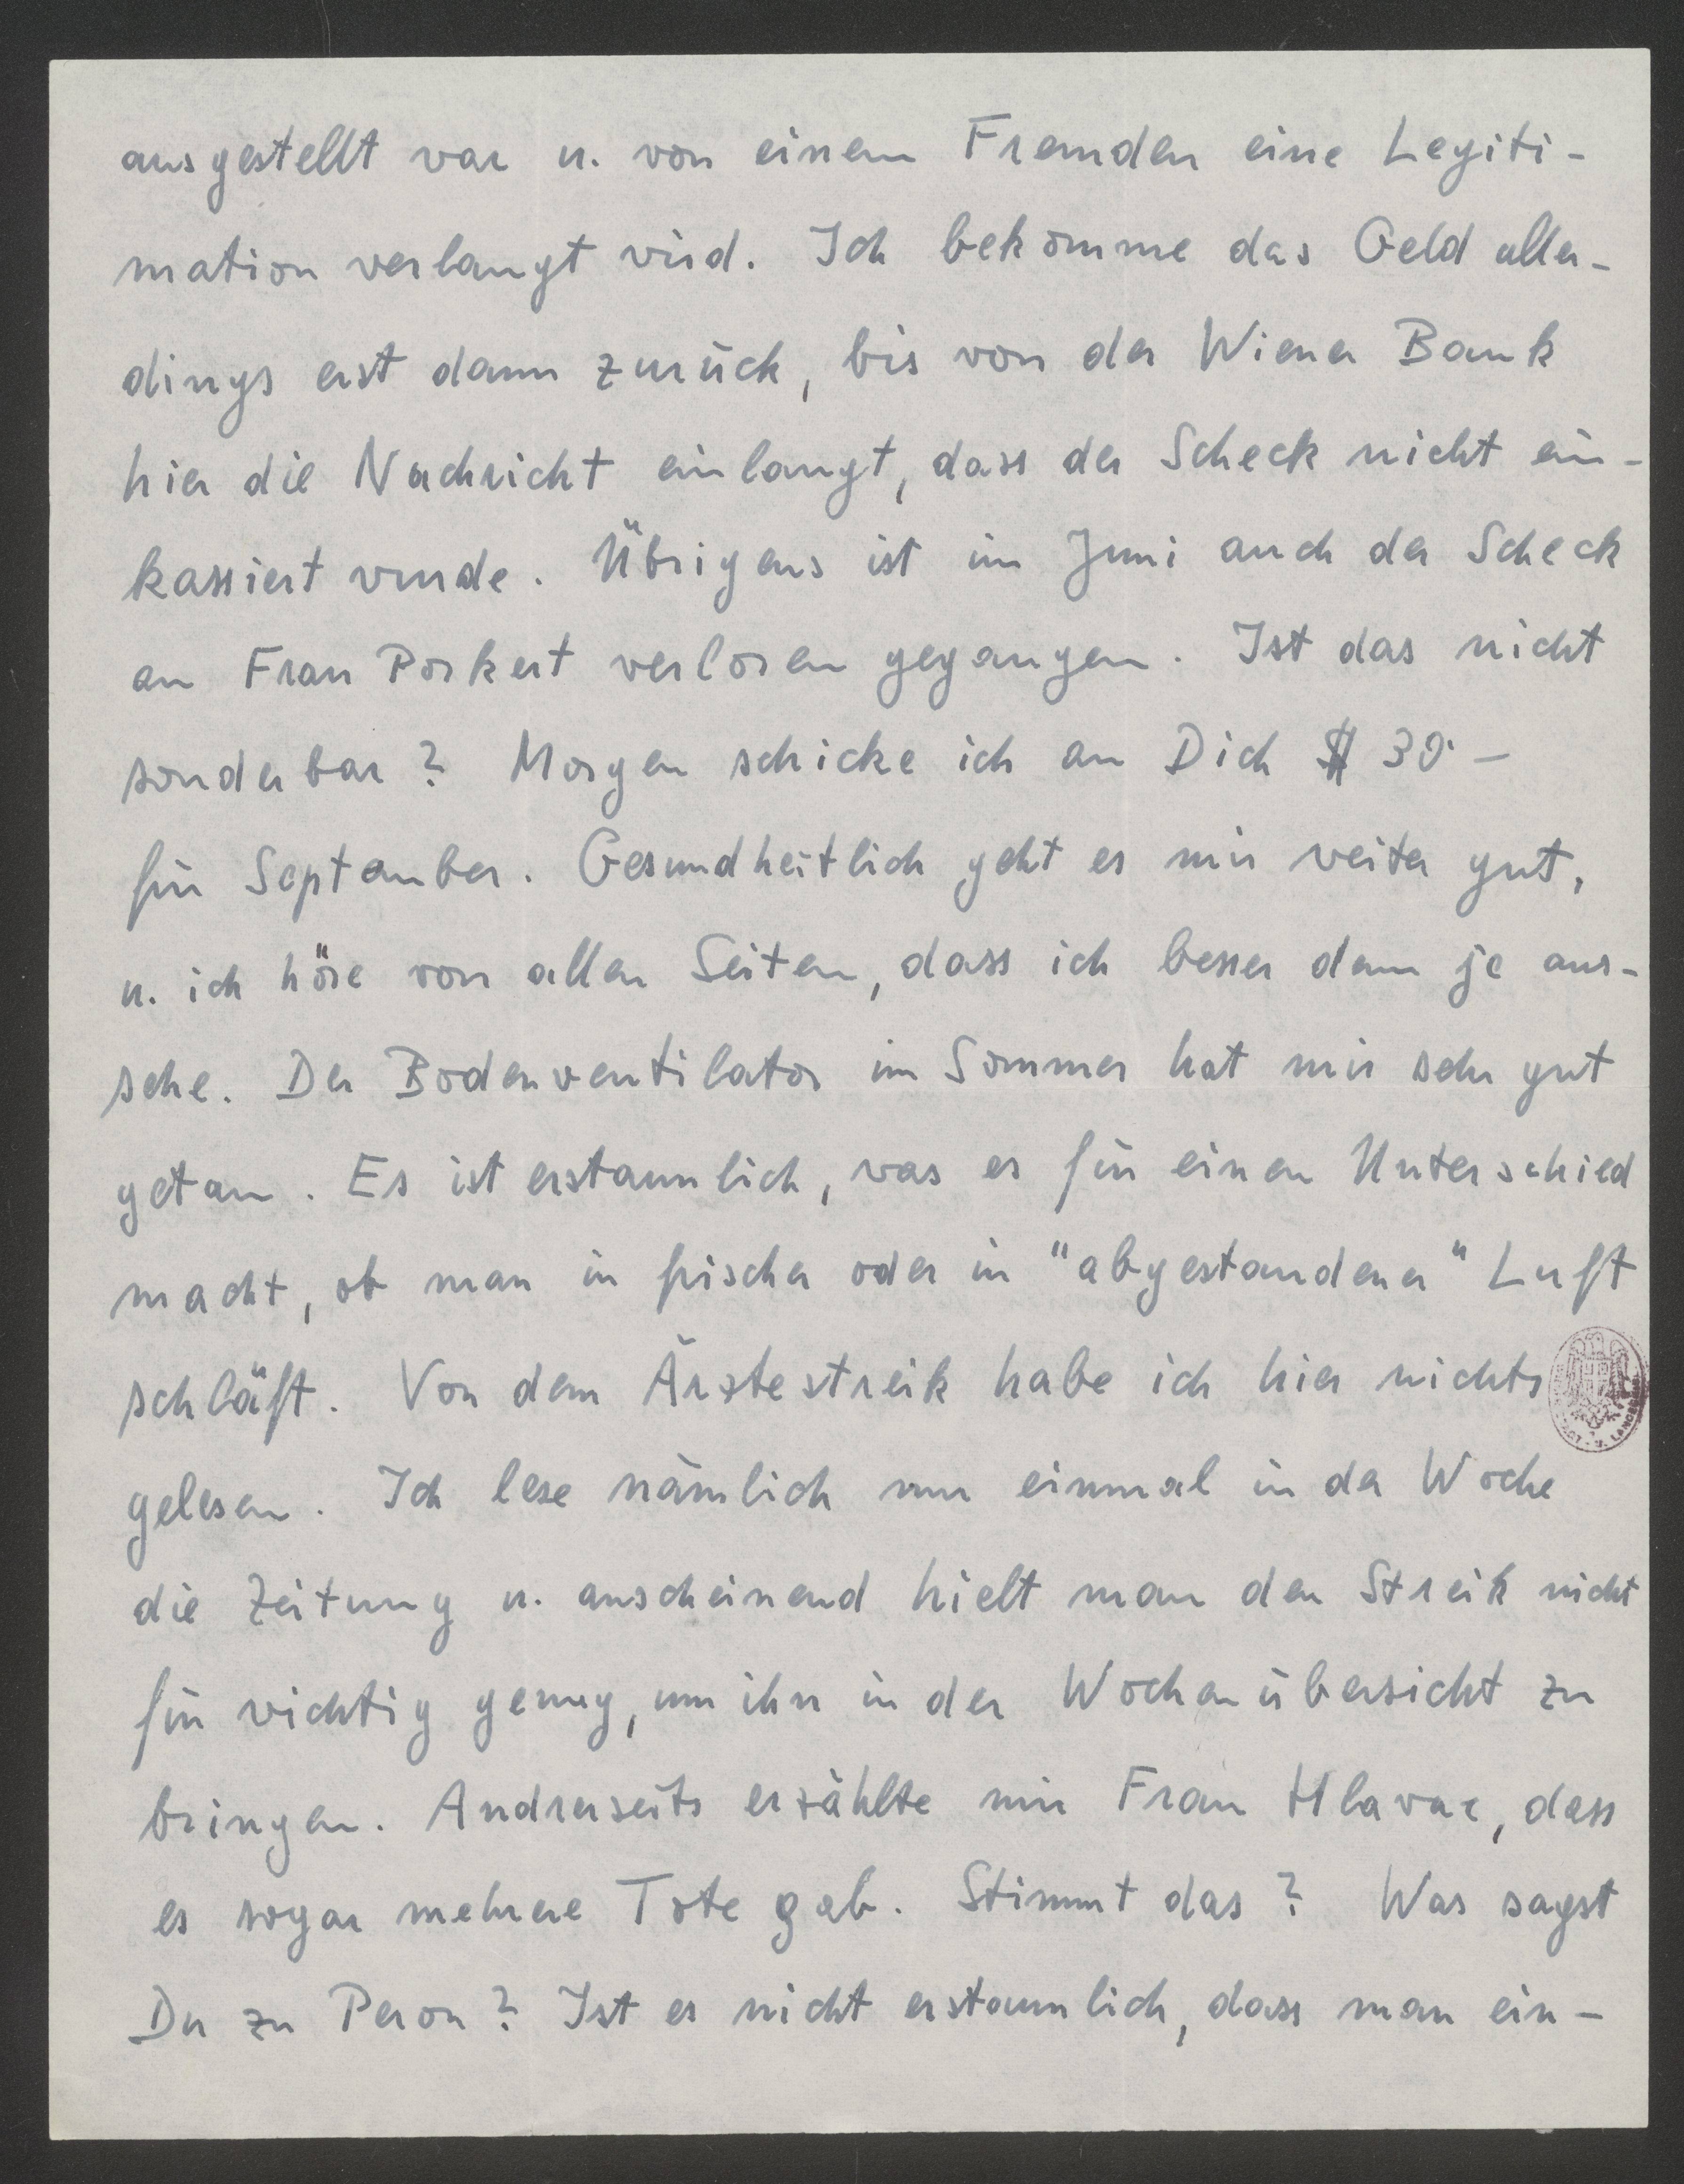 ausgestellt war u. von einem Fremden eine Legiti-
mation verlangt wird. Ich bekomme das Geld aller-
dings erst dann zurück, bis von der Wiener Bank
hier die Nachricht einlangt, dass der Scheck nicht ein-
kassiert wurde. Übrigens ist im Juni auch der Scheck
an Frau Porkert verloren gegangen. Ist das nicht
sonderbar? Morgen schicke ich an Dich $ 30·–
für September. Gesundheitlich geht es mir weiter gut,
u. ich höre von allen Seiten, dass ich besser denn je aus-
sehe. Der Bodenventilator im Sommer hat mir sehr gut
getan. Es ist erstaunlich, was es für einen Unterschied
macht, ob man in frischer oder in "abgestandener" Luft
schläft. Von dem Ärztestreik habe ich hier nichts
gelesen. Ich lese nämlich nur einmal in der Woche
die Zeitung u. anscheinend hielt man den Streik nicht
für wichtig genug, um ihn in der Wochenübersicht zu
bringen. Andrerseits erzählte mir Frau Hlavac, dass
es sogar mehrere Tote gab. Stimmt das? Was sagst
Du zu Peron? Ist es nicht erstaunlich, dass man ein-